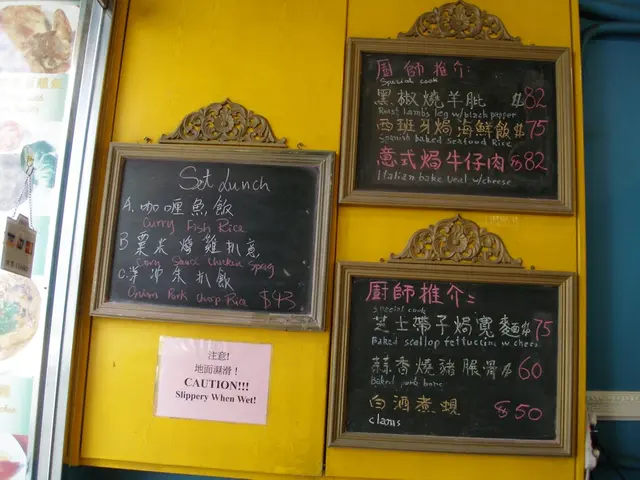 Set Lunch
A. 咖喱魚飯
Curry Fish Rice
B 粟米燒雞扒意
Corn Sauce Chicken Spag
C. 洋葱朱扒飯
Onion Pork Chop Rice $43
注意!
地面濕滑!
CAUTION!!!
Slippery When Wet!
廚師推介:
Special cook
黑椒燒羊肶 $82
Roast Lambs leg w/black pepper
西班牙焗海鮮飯 $75
Spanish baked Seafood Rice
意式焗牛仔肉 $82
Italian bake veal w/cheese
廚師推介:
Special cook
芝士帶子焗寬麵 $75
Baked scallop fettuccini w/chees
蒜香燒豬脹骨 $60
Baked
白酒煮蜆 $50
clams